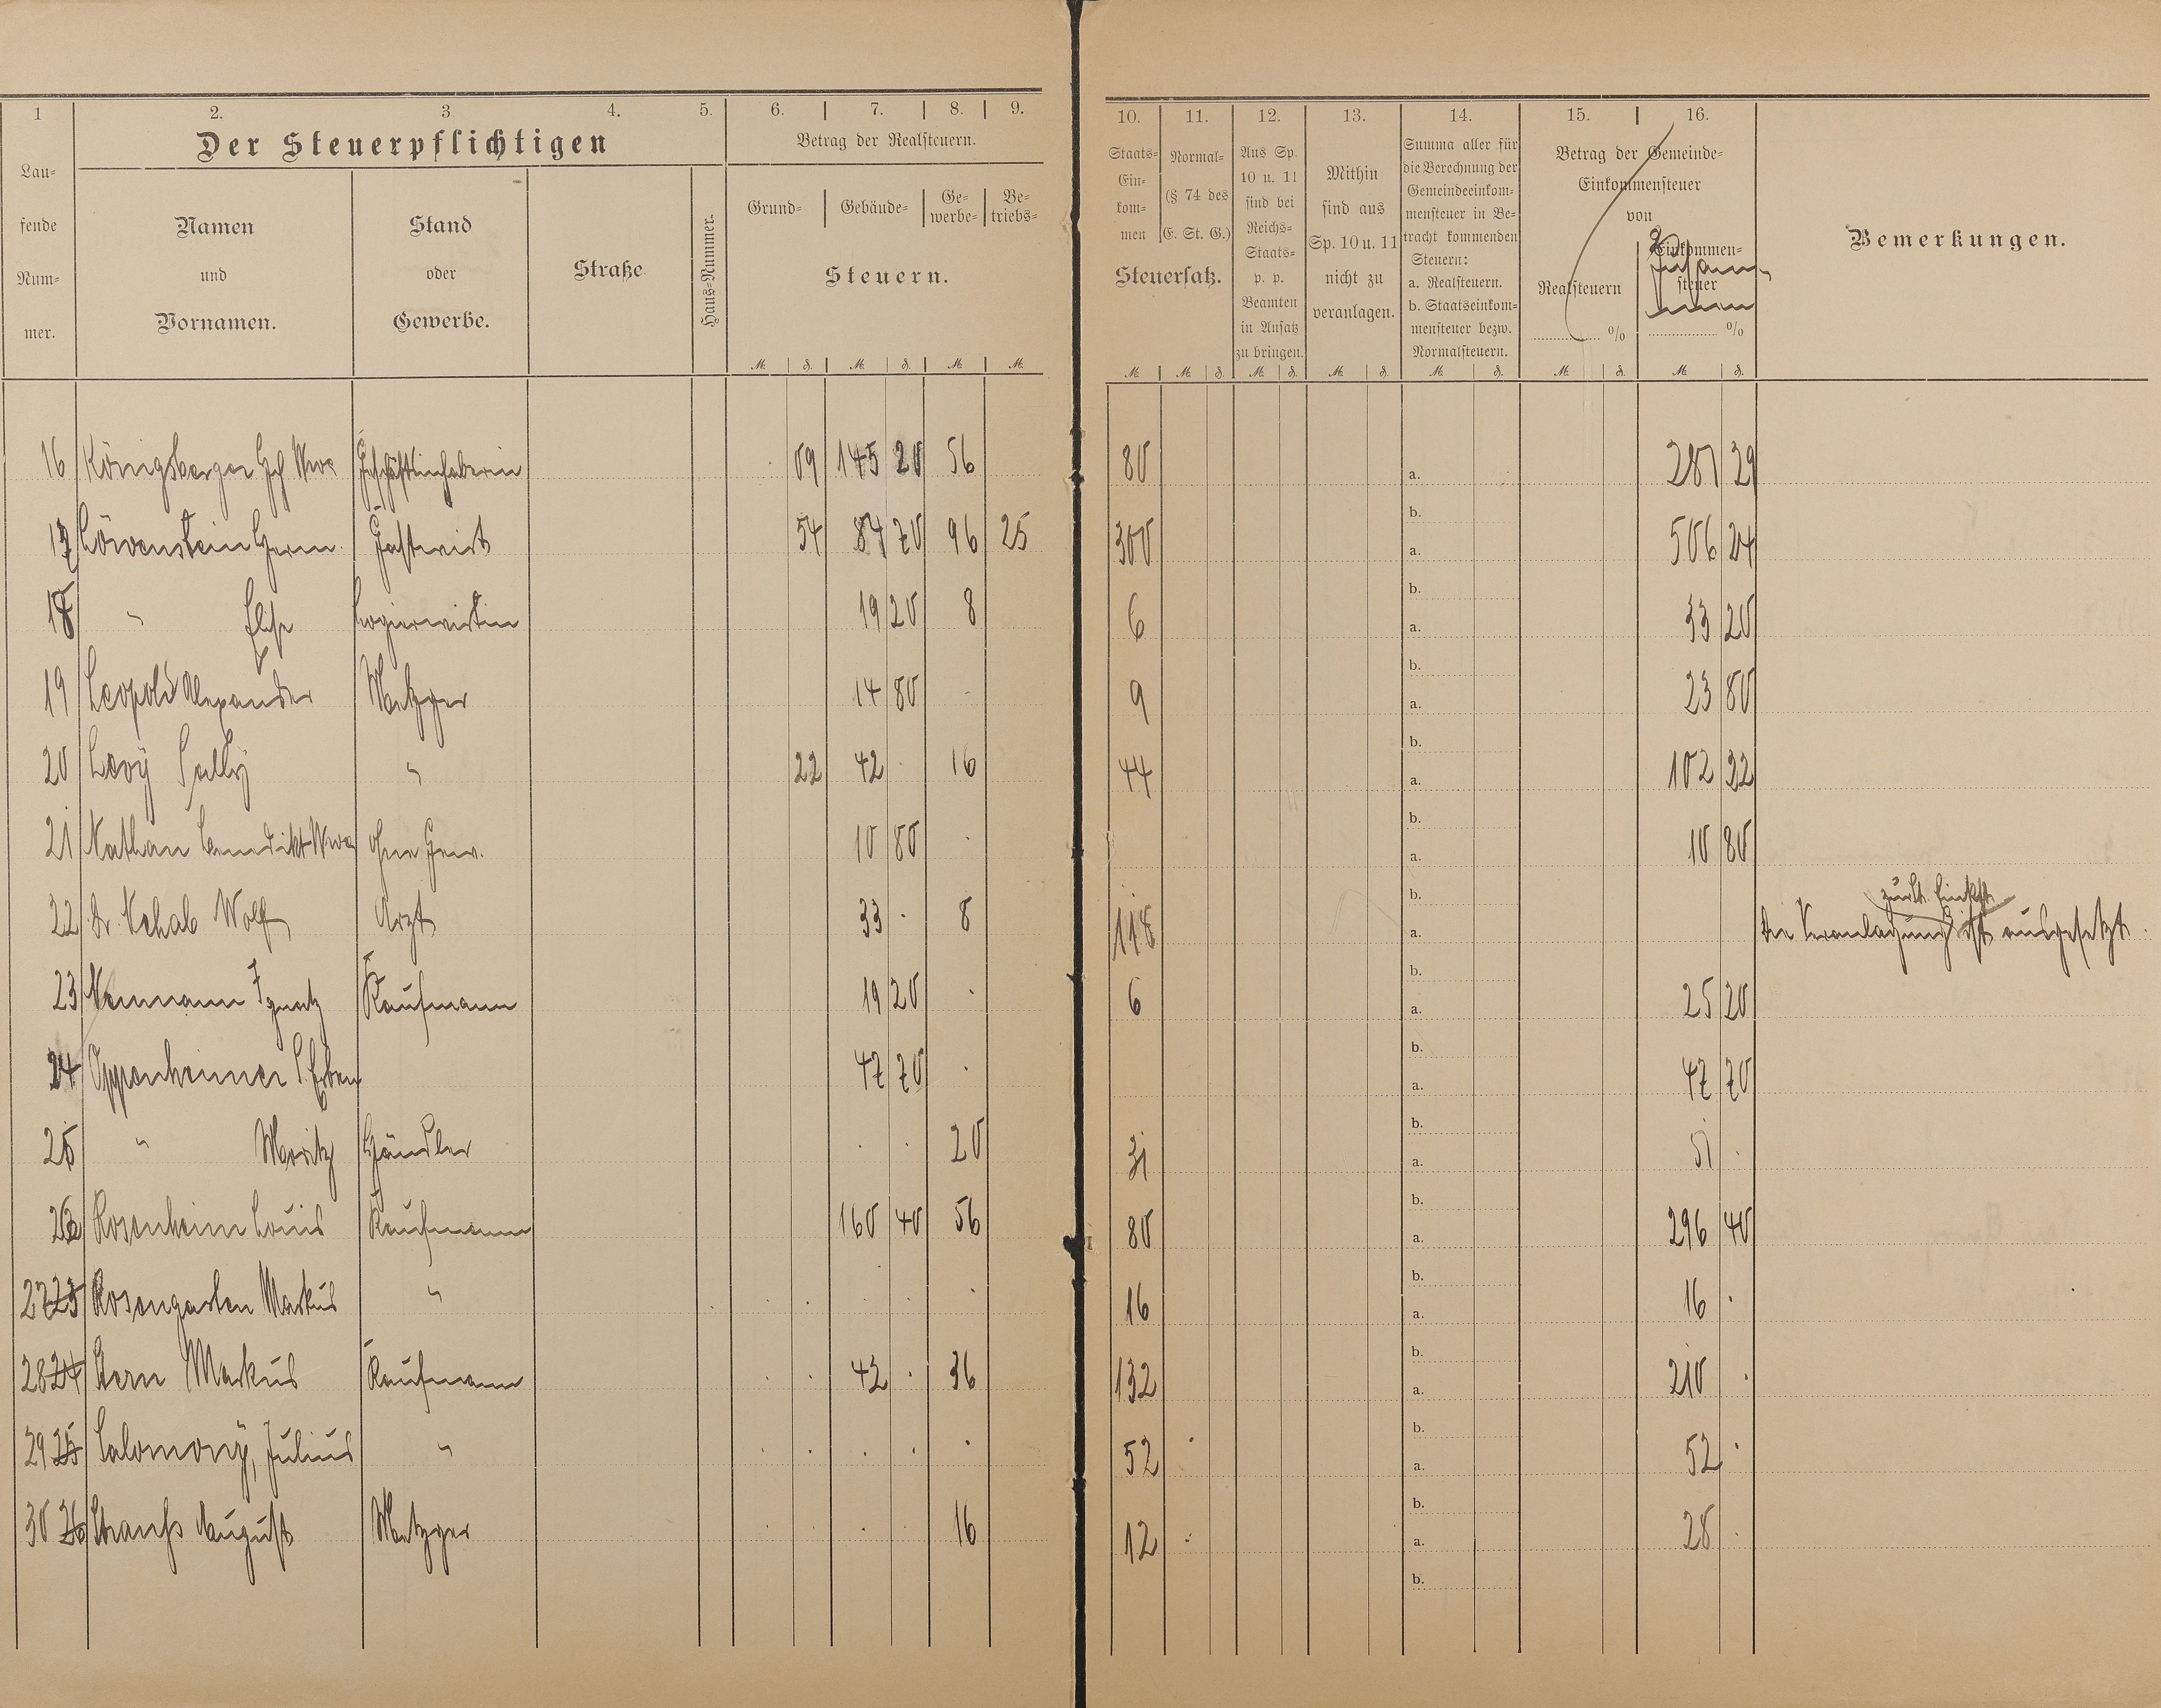 1 2. 3. 4. 5. 6. 7. 8. 9. 10. 11. 12. 13. 14. 15. 16.
Der Steuerpflichtigen
Betrag der Realsteuern.
Lau-
fende
Num-
mer.
Namen
und
Vornamen.
Stand
oder
Gewerbe.
Straße
Haus-Nummer.
Grund- Gebäude- Ge-werbe- Be-triebs-
Steuern.
M. ₰. M. ₰. M. M.
Staats-
Ein-
kom-
men
Normal-
(§ 74 des
E. St. G.)
Steuersatz.
Aus Sp.
10 u. 11
sind bei
Reichs-
Staats-
p. p.
Beamten
in Ansatz
zu bringen.
Mithin
sind aus
Sp. 10 u. 11
nicht zu
veranlagen.
Summa aller für
die Berechnung der
Gemeindeeinkom-
mensteuer in Be-
tracht kommenden
Steuern:
a. Realsteuern.
b. Staatseinkom-
mensteuer bezw.
Normalsteuern.
Betrag der Gemeinde-
Einkommensteuer
von
Realsteuern
%
Einkommen-
steuer
%
Zusam-
men
Bemerkungen.
M. M. ₰. M. ₰. M. ₰. M. ₰. M. ₰. M. ₰.
16 Königsberger Hch Wwe Geschäftsinhaberin 09 145 20 56 80 a. 281 29
b.
17 Löwenstein Herm. Gastwirt 54 84 70 96 25 300 a. 506 24
b.
18 " Elise Logierwirtin 19 20 8 6 a. 33 20
b.
19 Leopold Alexander Metzger 14 80 - 9 a. 23 80
b.
20 Levy Sally " 22 42 . 16 44 a. 102 22
b.
21 Nathan Benedikt Wwe ohne Gew. 10 80 . a. 10 80
b.
zur St. Eink.
22 Dr. Nehab Wolf Arzt 33 . 8 118 a. Die Veranlagung ist ausgesetzt.
b.
23 Neumann Ignatz Kaufmann 19 20 . 6 a. 25 20
b.
24 Oppenheimer S. Erben 47 70 . a. 47 70
b.
25 " Moritz Händler . . 20 31 a. 51 .
b.
26 Rosenheim Louis Kaufmann 160 40 56 80 a. 296 40
b.
27 23 Rosengarten Markus " . . . . . 16 a. 16 .
b.
28 24 Stern Markus Kaufmann . . 42 . 36 132 a. 210 .
b.
29 25 Salomony, Julius " . . . . . 52 . a. 52 .
b.
30 26 Strauß August Metzger . . . . 16 12 . a. 28 .
b.